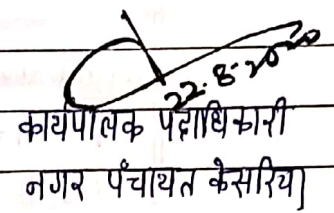 22.8.2020
कार्यपालक पदाधिकारी
नगर पंचायत केसरिया